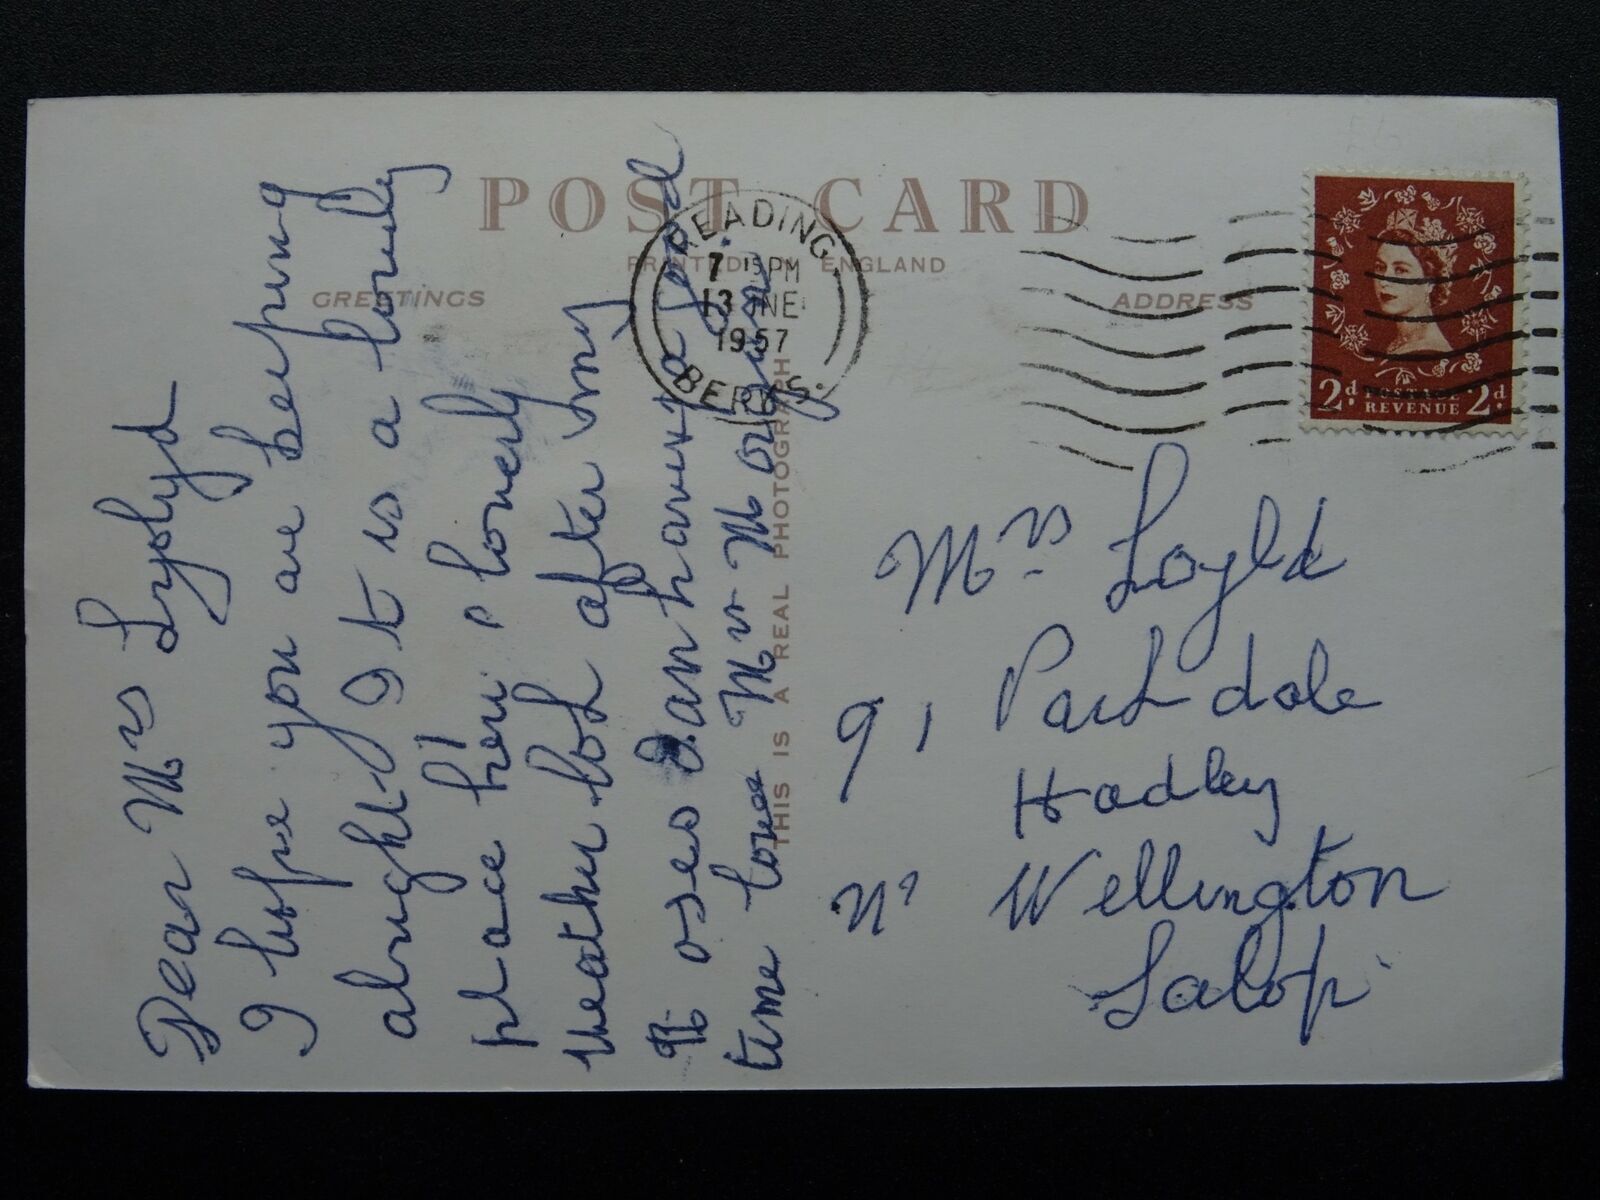 POST CARD
PRINTED IN ENGLAND
GREETINGS
ADDRESS
READING
7 15PM
13 JNE
1957
BERKS.
2d. POSTAGE REVENUE 2d.
THIS IS A REAL PHOTOGRAPH
Dear Mrs Lyolyd
I hope you are keeping
alright It is a lovely
place here lovely
weather look after my
Roses I am having a good
time love Mrs Morgan
Mrs Loyld
91 Park dale
Hadley
Nr Wellington
Salop